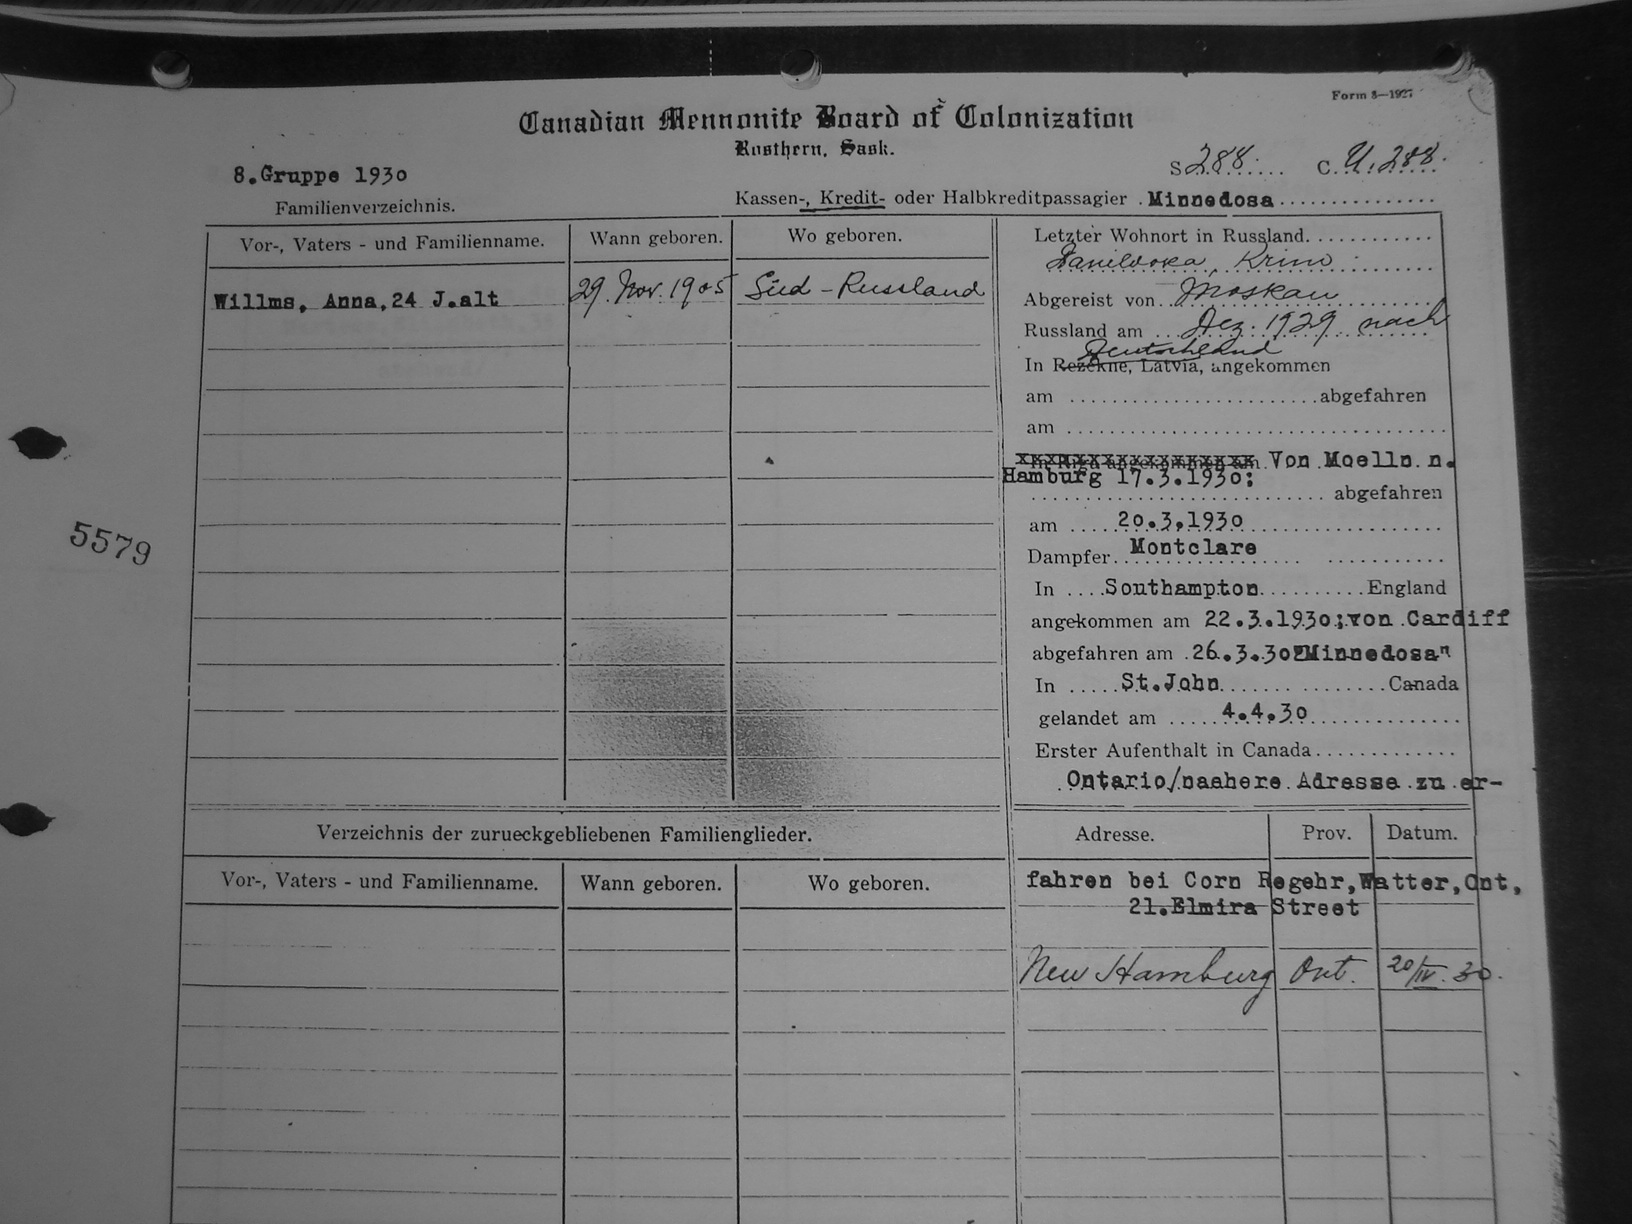 Form 3—1927
Canadian Mennonite Board of Colonization
Rosthern, Sask.
8.Gruppe 1930
S 288. C. U. 288.
Familienverzeichnis.
Kassen-, Kredit- oder Halbkreditpassagier . Minnedosa
Vor-, Vaters - und Familienname. Wann geboren. Wo geboren.
Willms, Anna,24 J.alt 29. Nov. 1905 Süd-Russland
Letzter Wohnort in Russland
Krim
Abgereist von Moskau
Russland am Dez. 1929 nach
Deutschland
In Rezekne, Latvia, angekommen
am abgefahren
am
In Riga angekommen am Von Moelln n.
Hamburg 17.3.1930;
abgefahren
am 20.3.1930
Dampfer Montclare
In Southampton England
angekommen am 22.3.1930;von Cardiff
abgefahren am 26.3.30"Minnedosa"
In St.John Canada
gelandet am 4.4.30
Erster Aufenthalt in Canada
Ontario/naahere Adresse zu er-
5579
Verzeichnis der zurueckgebliebenen Familienglieder.
Vor-, Vaters - und Familienname. Wann geboren. Wo geboren.
Adresse. Prov. Datum.
fahren bei Corn Regehr,Watter,Ont,
21.Elmira Street
New Hamburg Ont. 20/IV. 30.